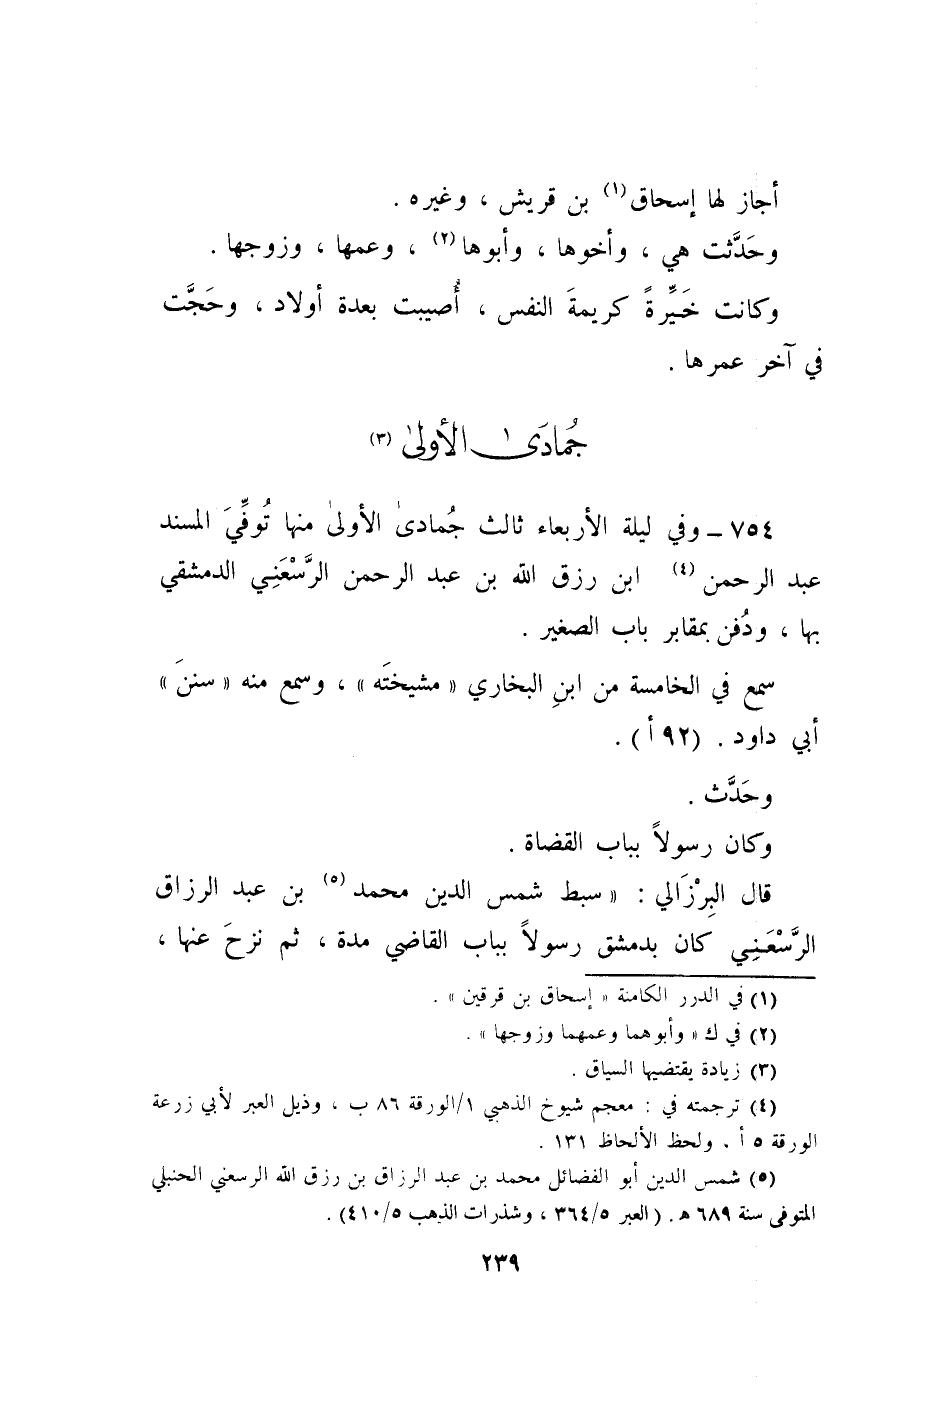 أجاز لها إسحاق(١) بن قريش ، وغيره .
وحَدَّثت هي ، وأخوها ، وأبوها(٢) ، وعمها ، وزوجها .
وكانت خَيِّرةً كريمةَ النفس ، أُصيبت بعدة أولاد ، وحَجَّت
في آخر عمرها .
جُمادَى الأولىٰ (٣)
٧٥٤ ـ وفي ليلة الأربعاء ثالث جُمادىٰ الأولىٰ منها تُوفِّيَ المسند
عبد الرحمن (٤) ابن رزق الله بن عبد الرحمن الرَّسْعَنِي الدمشقي
بها ، ودُفن بمقابر باب الصغير .
سمع في الخامسة من ابنِ البخاري « مشيختَه » ، وسمع منه « سننَ »
أبي داود . (٩٢ أ) .
وحَدَّث .
وكان رسولاً بباب القضاة .
قال البِرْزَالي : « سبط شمس الدين محمد (٥) بن عبد الرزاق
الرَّسْعَنِي كان بدمشق رسولاً بباب القاضي مدة ، ثم نزحَ عنها ،
(١) في الدرر الكامنة « إسحاق بن قرقين » .
(٢) في ك « وأبوهما وعمهما وزوجها » .
(٣) زيادة يقتضيها السياق .
(٤) ترجمته في : معجم شيوخ الذهبي ١/الورقة ٨٦ ب ، وذيل العبر لأبي زرعة
الورقة ٥ أ ، ولحظ الألحاظ ١٣١ .
(٥) شمس الدين أبو الفضائل محمد بن عبد الرزاق بن رزق الله الرسعني الحنبلي
المتوفى سنة ٦٨٩ هـ . (العبر ٣٦٤/٥ ، وشذرات الذهب ٤١٠/٥) .
٢٣٩